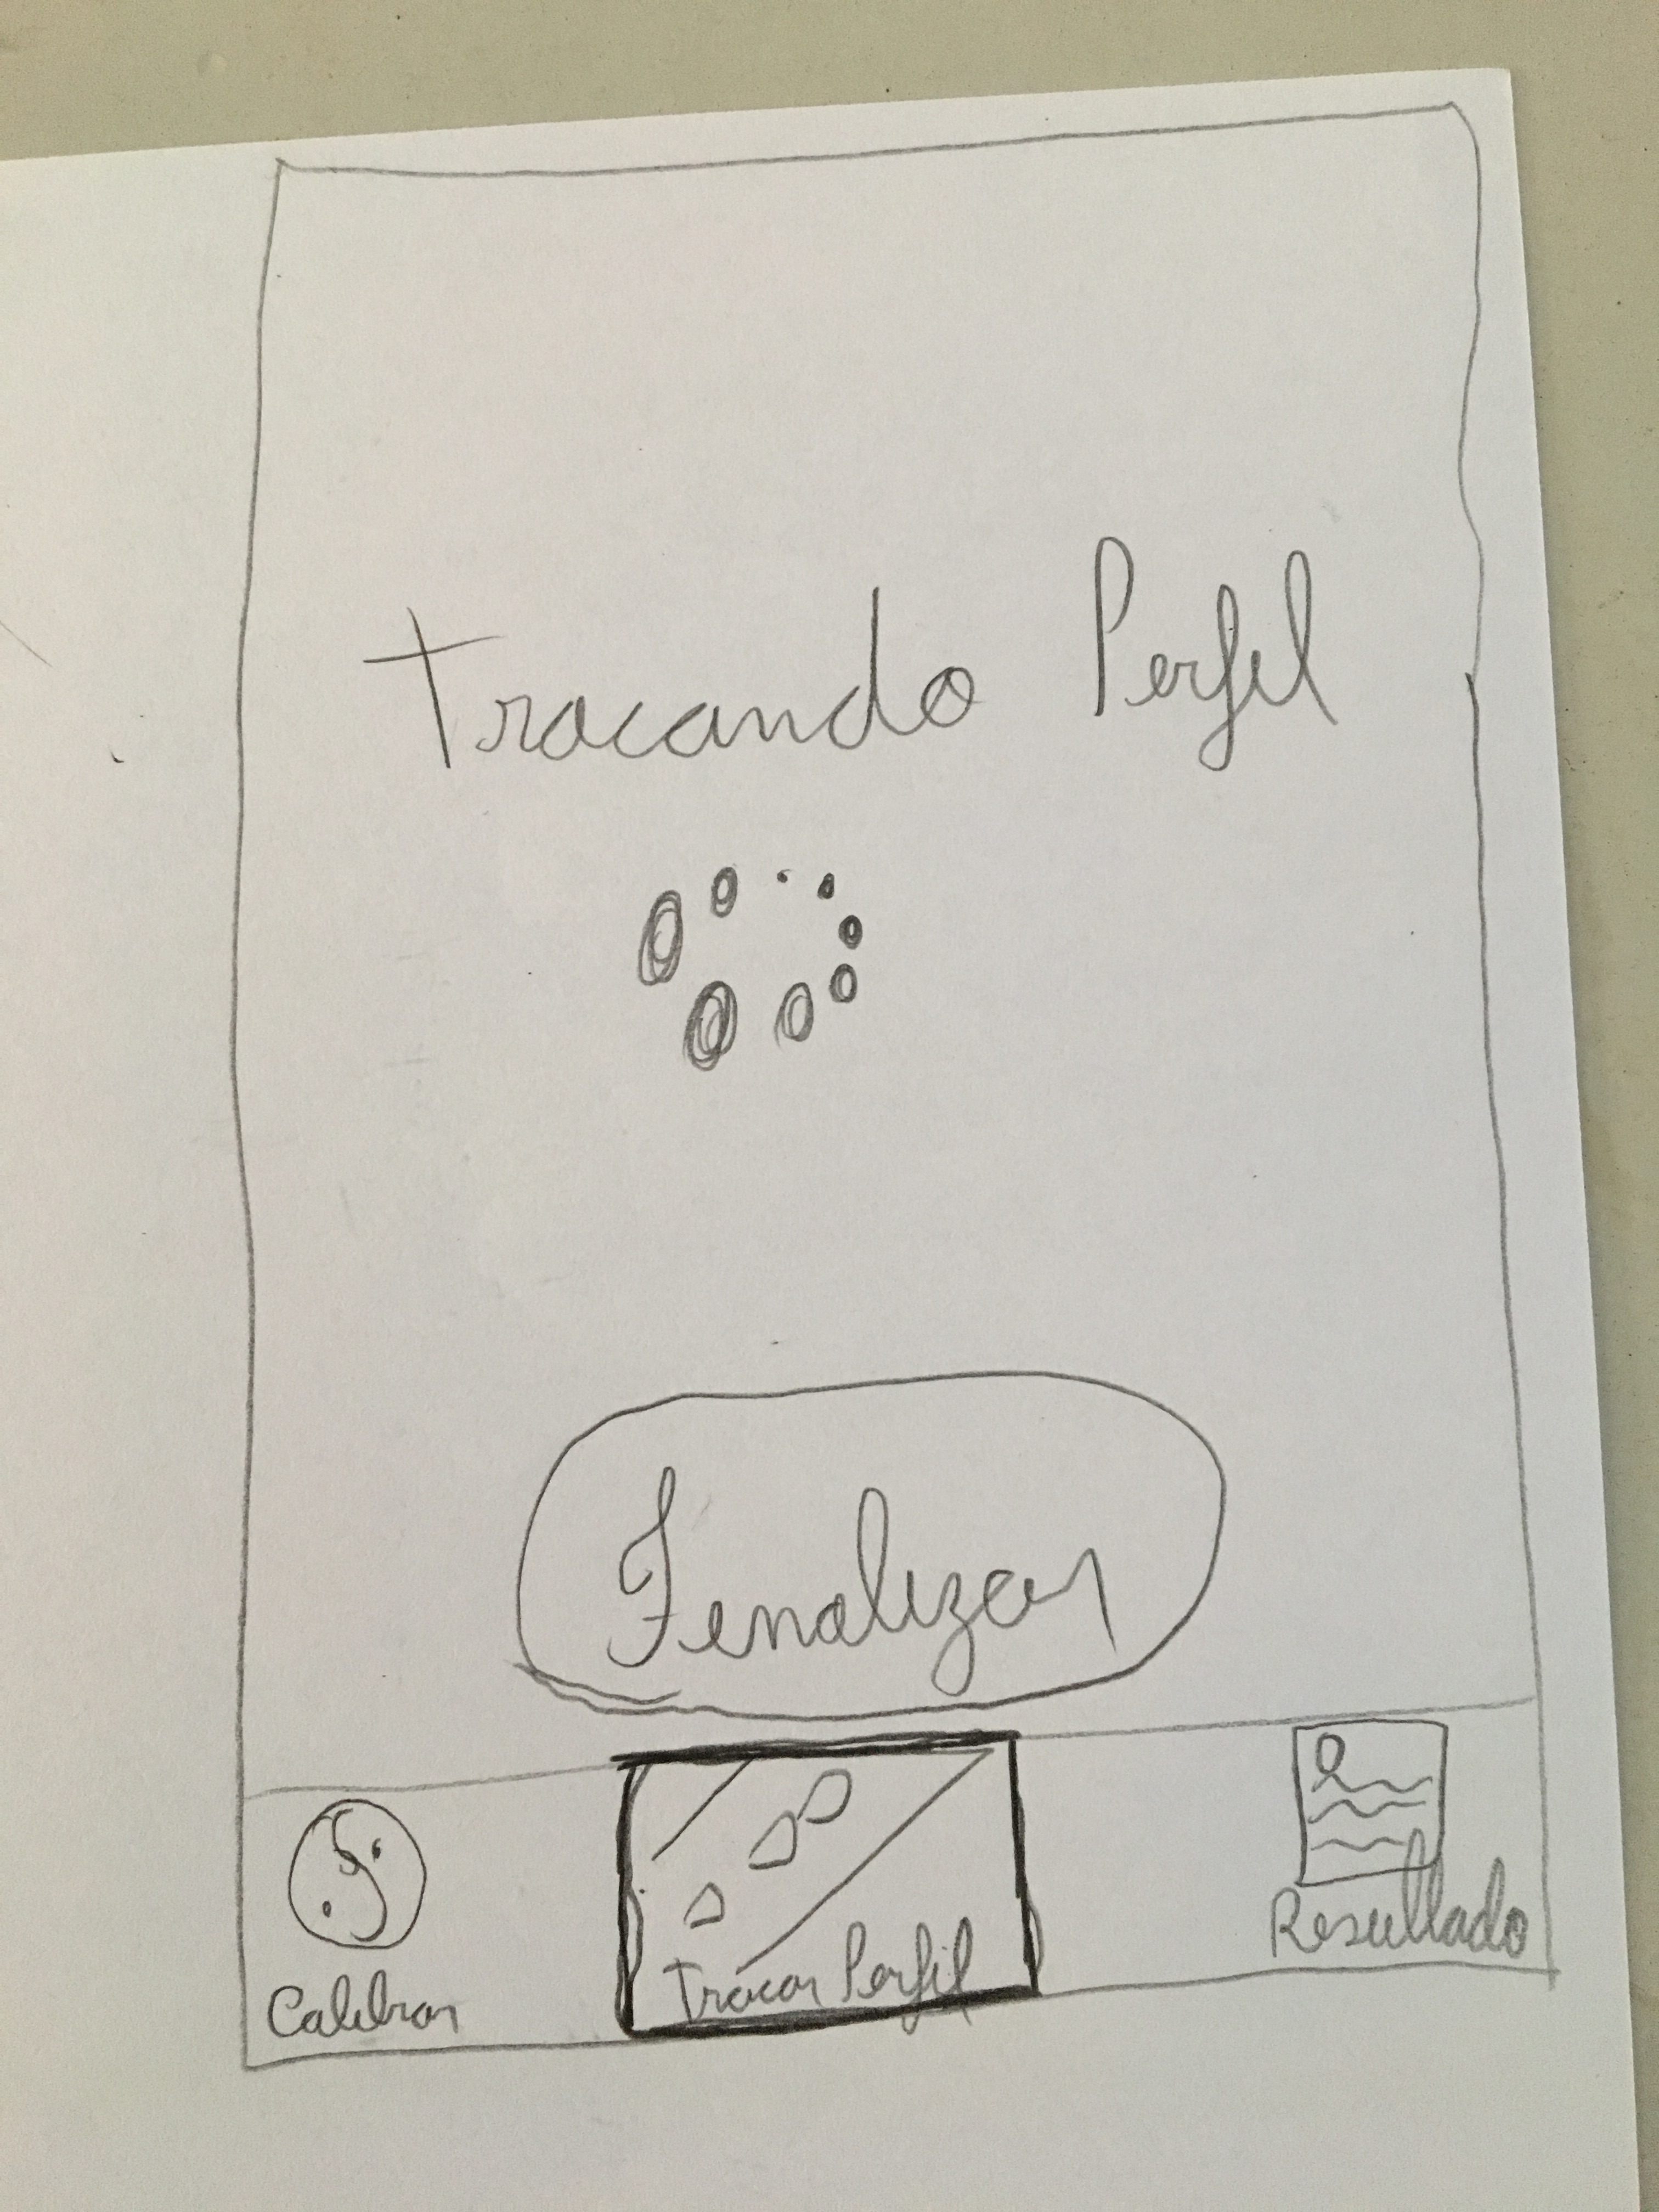 Tracando Perfil
Finalizar
Calibrar
Tracar Perfil
Resultado